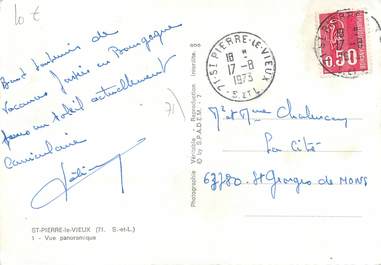 10 €
Bons souvenirs de
vacances passées en Bourgogne
sous un soleil actuellement
caniculaire
71)
ST-PIERRE-le-VIEUX (71. S.-et-L.)
1 - Vue panoramique
Photographie Véritable - Reproduction Interdite.
© by S.P.A.D.E.M. - ?
71-ST PIERRE-LE-VIEUX
18 H
17-8
1973
S. ET L.
0,50
Mr et Mme
La Cité
63780. St Georges de MONS